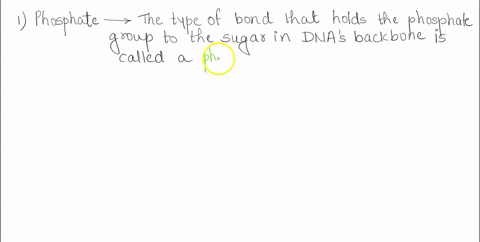 1) Phosphate → The type of bond that holds the phosphate
group to the sugar in DNA's backbone is
called a ph